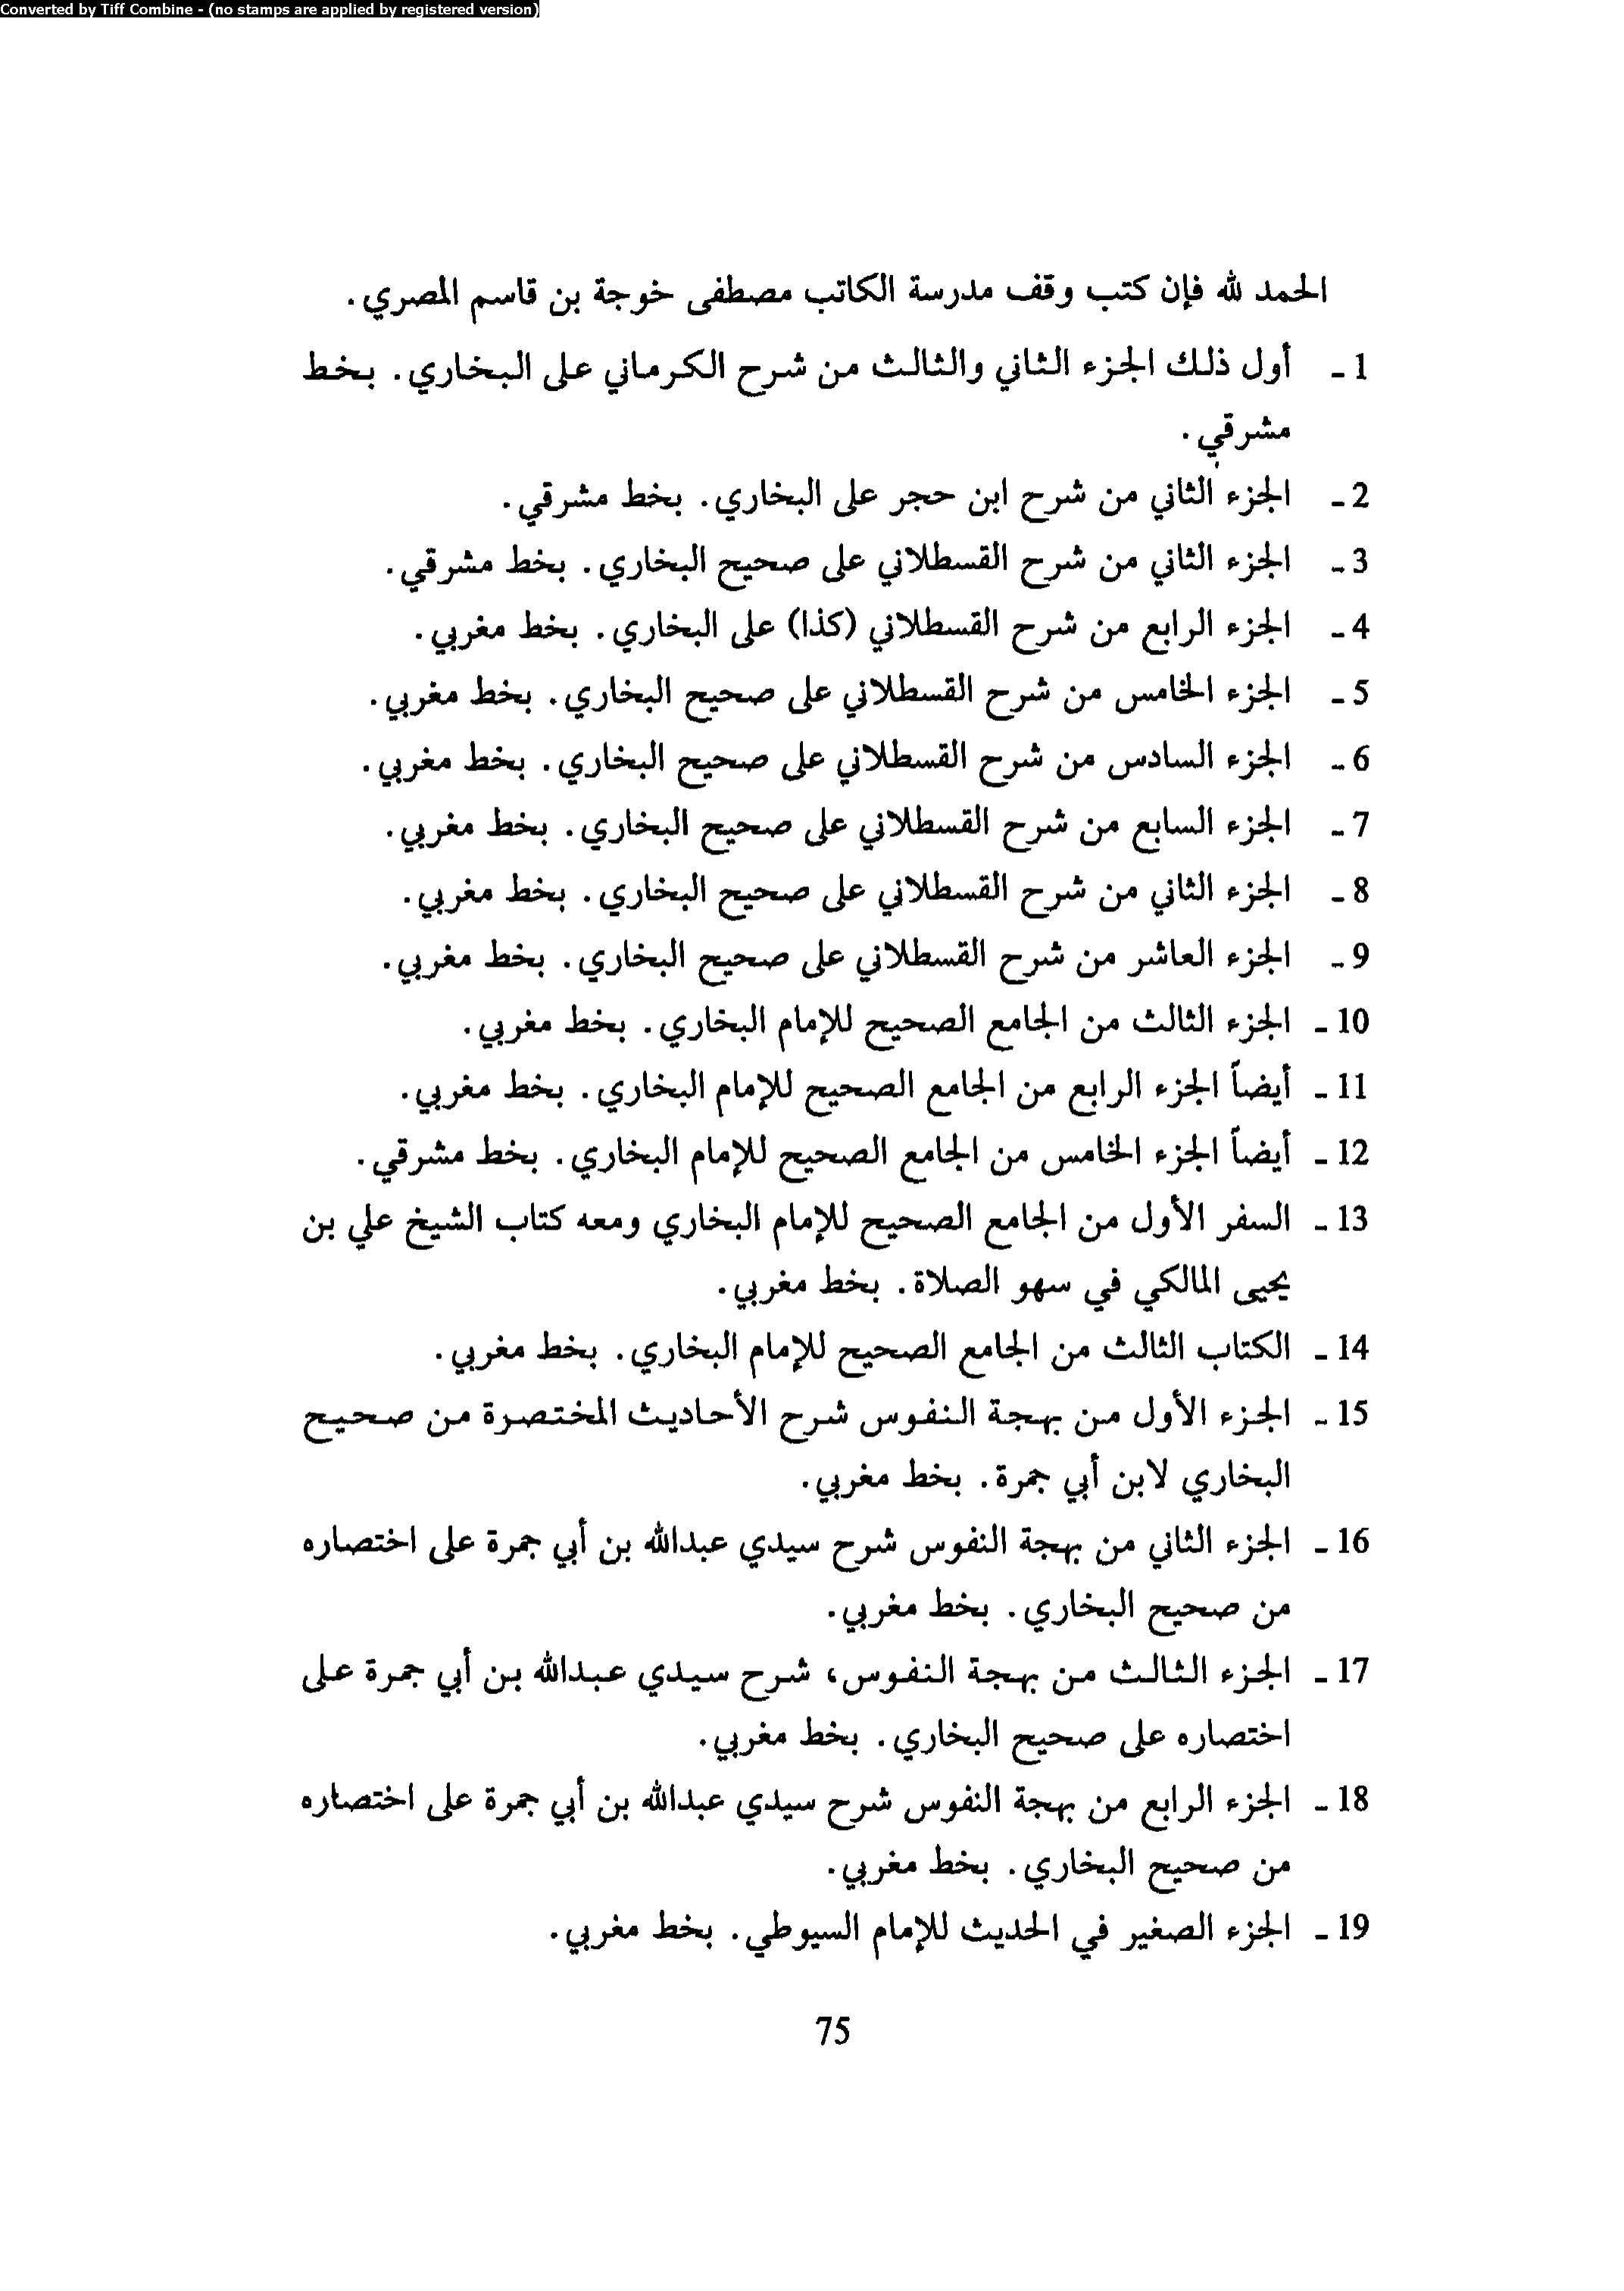 Converted by Tiff Combine - (no stamps are applied by registered version)
الحمد لله فإن كتب وقف مدرسة الكاتب مصطفى خوجة بن قاسم المصري.
1 - أول ذلك الجزء الثاني والثالث من شرح الكرماني على البخاري. بخط
مشرقي.
2 - الجزء الثاني من شرح ابن حجر على البخاري. بخط مشرقي.
3 - الجزء الثاني من شرح القسطلاني على صحيح البخاري. بخط مشرقي.
4 - الجزء الرابع من شرح القسطلاني (كذا) على البخاري. بخط مغربي.
5 - الجزء الخامس من شرح القسطلاني على صحيح البخاري. بخط مغربي.
6 - الجزء السادس من شرح القسطلاني على صحيح البخاري. بخط مغربي.
7 - الجزء السابع من شرح القسطلاني على صحيح البخاري. بخط مغربي.
8 - الجزء الثاني من شرح القسطلاني على صحيح البخاري. بخط مغربي.
9 - الجزء العاشر من شرح القسطلاني على صحيح البخاري. بخط مغربي.
10 - الجزء الثالث من الجامع الصحيح للإمام البخاري. بخط مغربي.
11 - أيضاً الجزء الرابع من الجامع الصحيح للإمام البخاري. بخط مغربي.
12 - أيضاً الجزء الخامس من الجامع الصحيح للإمام البخاري. بخط مشرقي.
13 - السفر الأول من الجامع الصحيح للإمام البخاري ومعه كتاب الشيخ علي بن
يحيى المالكي في سهو الصلاة. بخط مغربي.
14 - الكتاب الثالث من الجامع الصحيح للإمام البخاري. بخط مغربي.
15 - الجزء الأول من بهجة النفوس شرح الأحاديث المختصرة من صحيح
البخاري لابن أبي جمرة. بخط مغربي.
16 - الجزء الثاني من بهجة النفوس شرح سيدي عبدالله بن أبي جمرة على اختصاره
من صحيح البخاري. بخط مغربي.
17 - الجزء الثالث من بهجة النفوس، شرح سيدي عبدالله بن أبي جمرة على
اختصاره على صحيح البخاري. بخط مغربي.
18 - الجزء الرابع من بهجة النفوس شرح سيدي عبدالله بن أبي جمرة على اختصاره
من صحيح البخاري. بخط مغربي.
19 - الجزء الصغير في الحديث للإمام السيوطي. بخط مغربي.
75